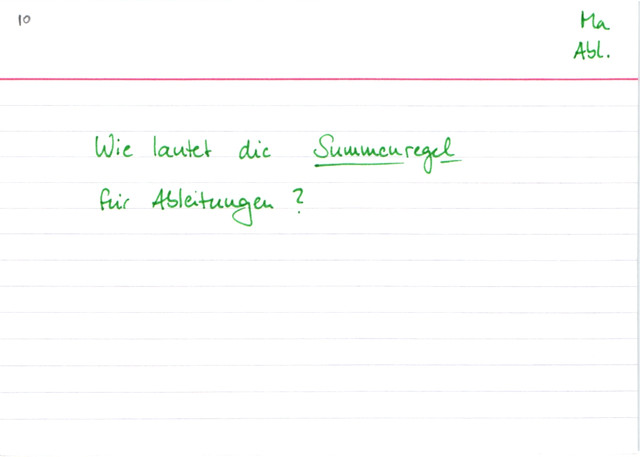 10
Ma
Abl.
Wie lautet die Summenregel
für Ableitungen?